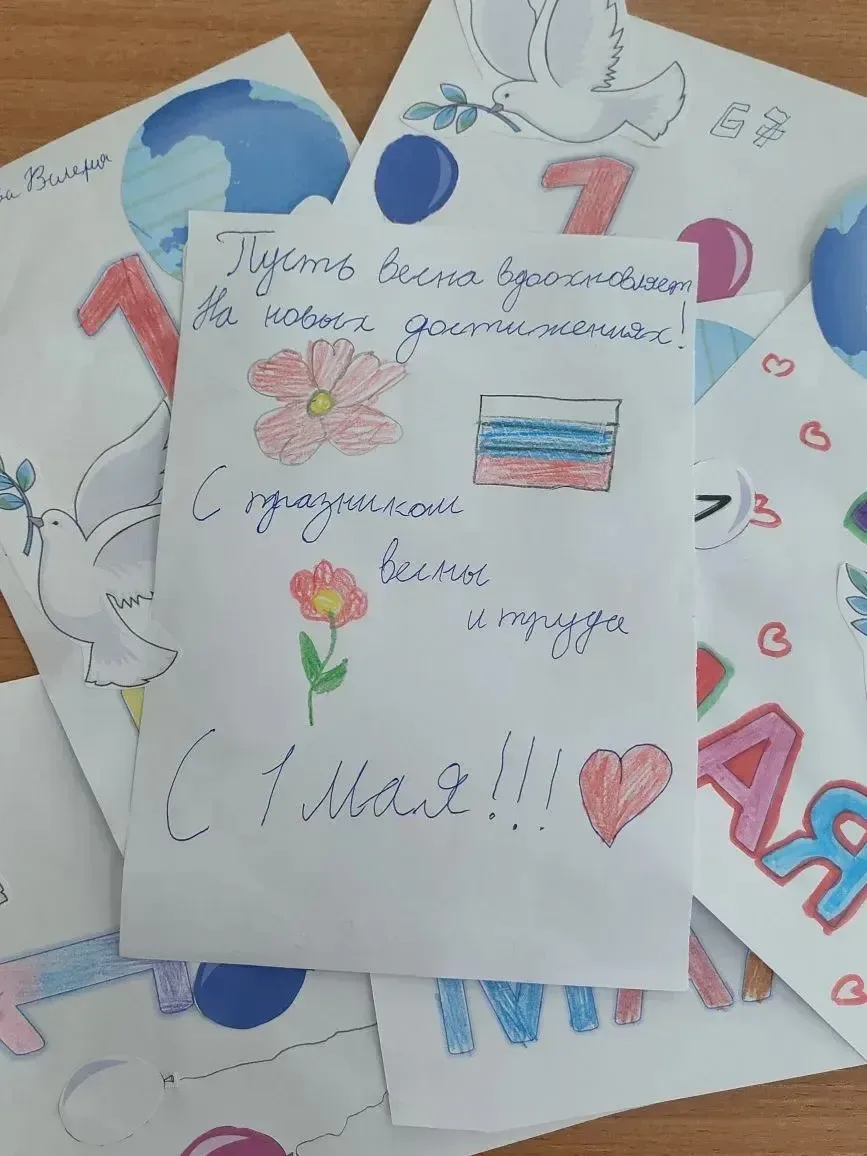 Валерия
6 в
1
1
Пусть весна вдохновляет
На новых достижениях!
С празником
весны
и труда
С 1 мая!!!
АЯ
1
МАЯ